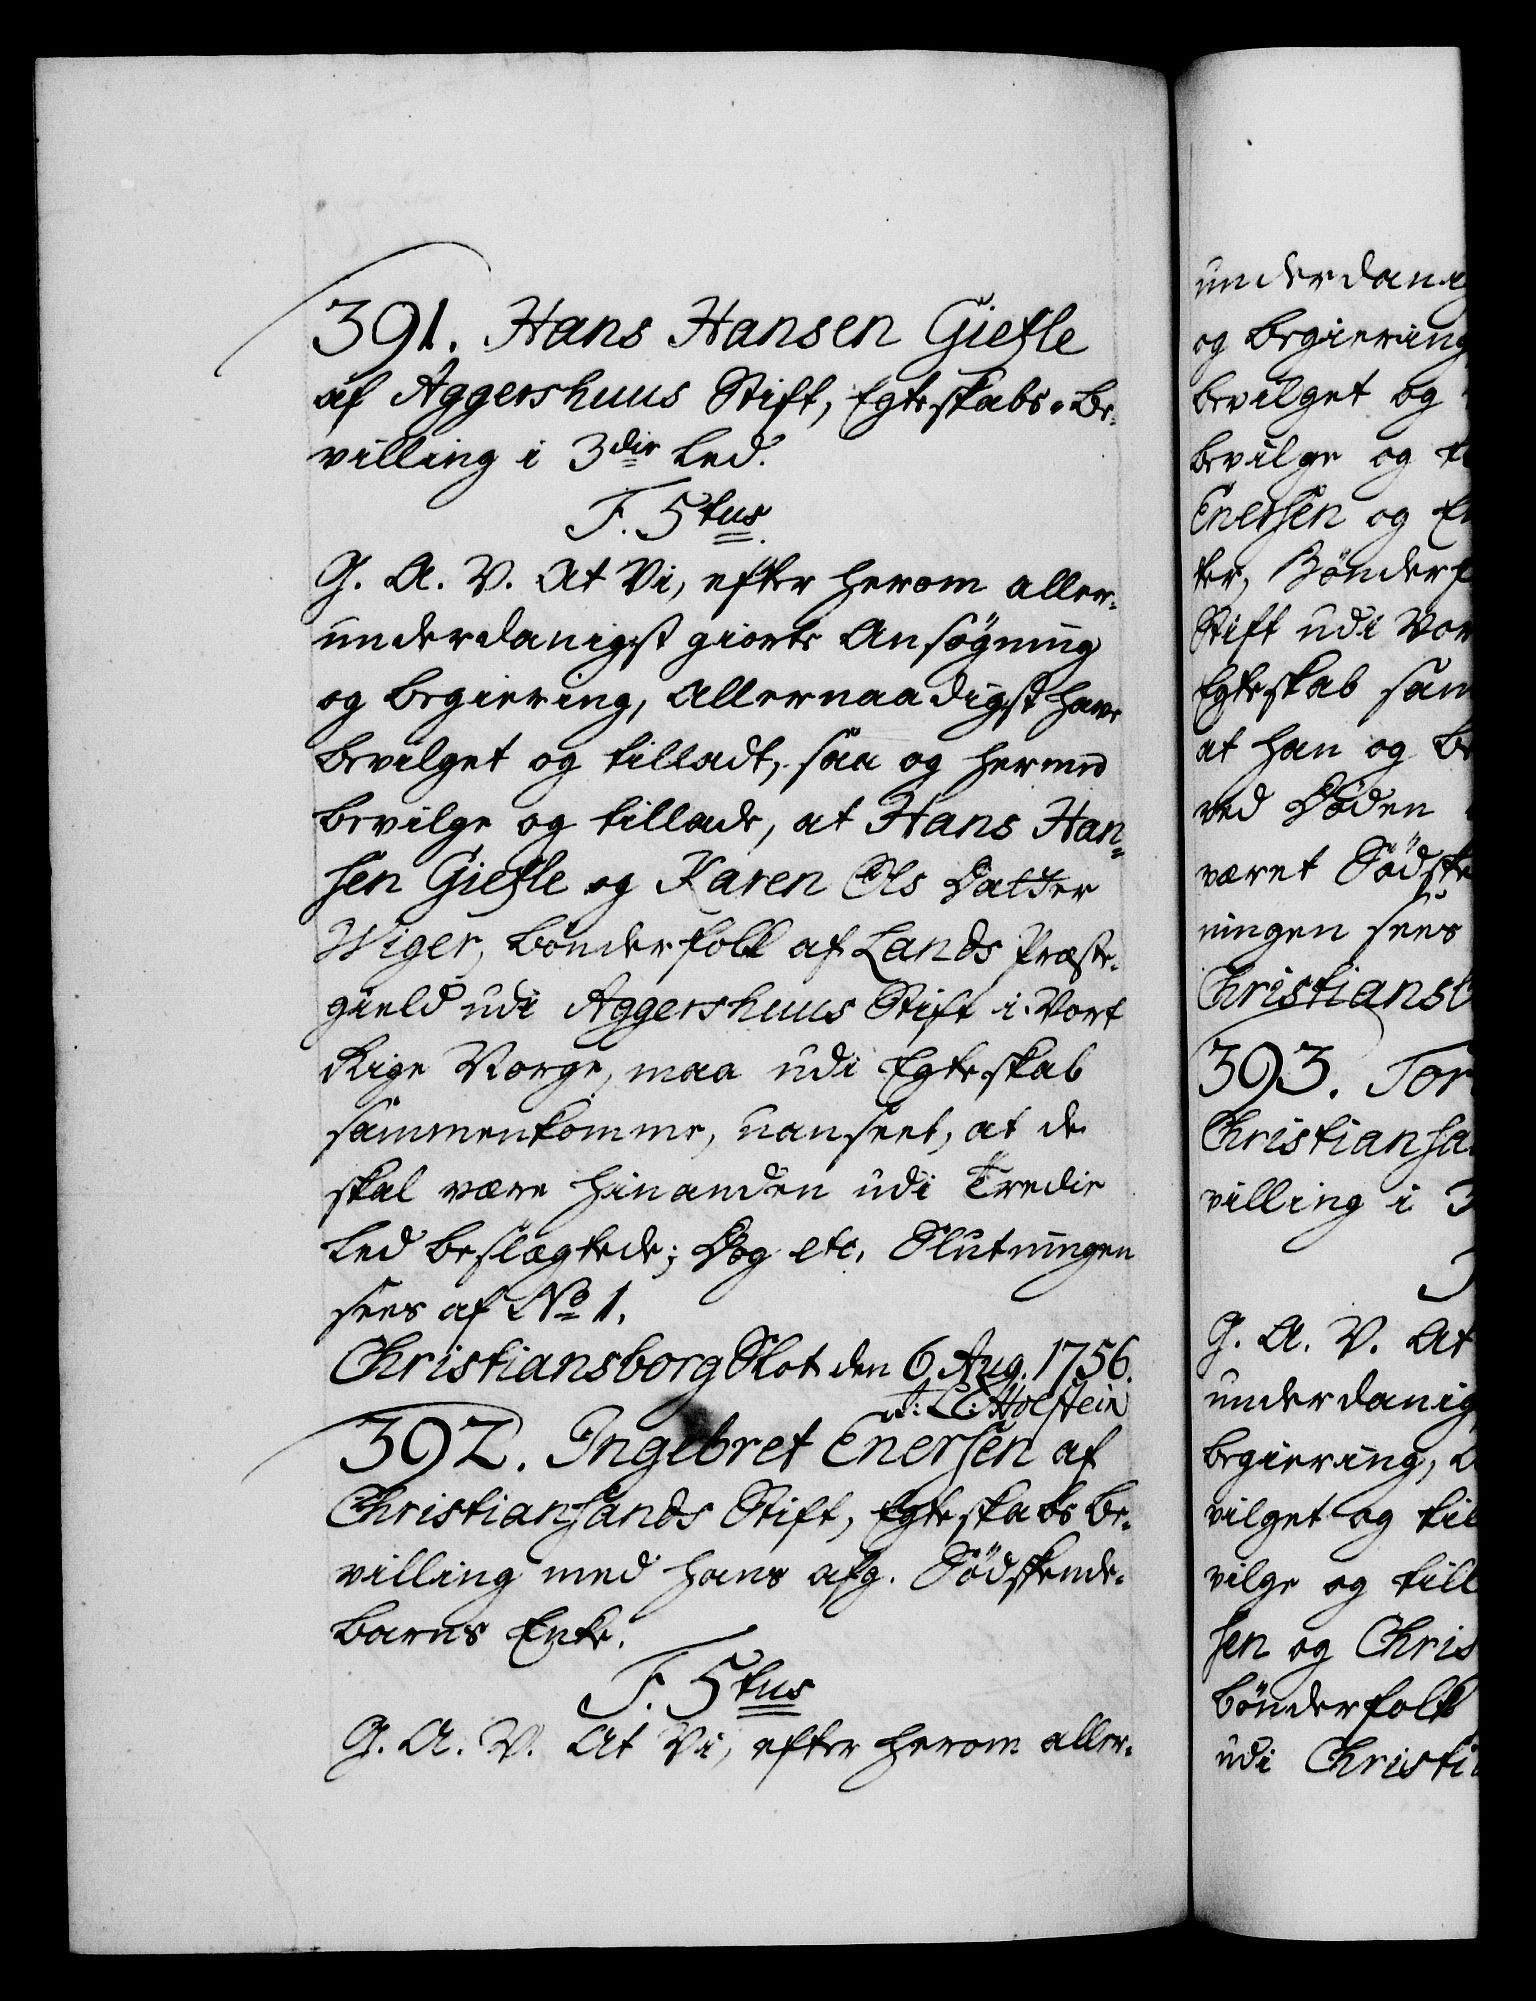 391. Hans Hansen Giefle
af Aggershuus Stift, Egteskabs-Be-
villing i 3die Led.
F. 5tus.
G. A. V. At Vi, efter herom aller-
underdanigst giorte Ansøgning
og Begiering, Allernaadigst have
bevilget og tilladt, saa og hermed
bevilge og tillade, at Hans Han-
sen Giefle og Karen Ols Datter
Wiger, Bønderfolk af Lands Præste-
gield udi Aggershuus Stift i Vort
Rige Norge, maa udi Egteskab
sammenkomme, uanseet, at de
skal være hinanden udi Tredie
Led beslægtede; Dog etc. Slutningen
sees af No 1.
Christiansborg Slot den 6 Aug. 1756.
Holstein
392. Ingebret Enersen af
Christiansands Stift, Egteskabs Be-
villing med hans afg. Sødskende-
barns Enke.
F. 5tus
G. A. V. At Vi, efter herom aller-
underdanig
og Begiering
bevilget og
bevilge og
Enersen og
ter, Bønderf
Stift udi Vor
Egteskab sam
at han og
ved Døden
været Sødske
ningen sees
Christiansb
393. Tor
Christiansa
villing i 3
G. A. V. At
underdanig
Begiering,
vilget og til
vilge og till
sen og Chris
Bønderfolk
udi Christi